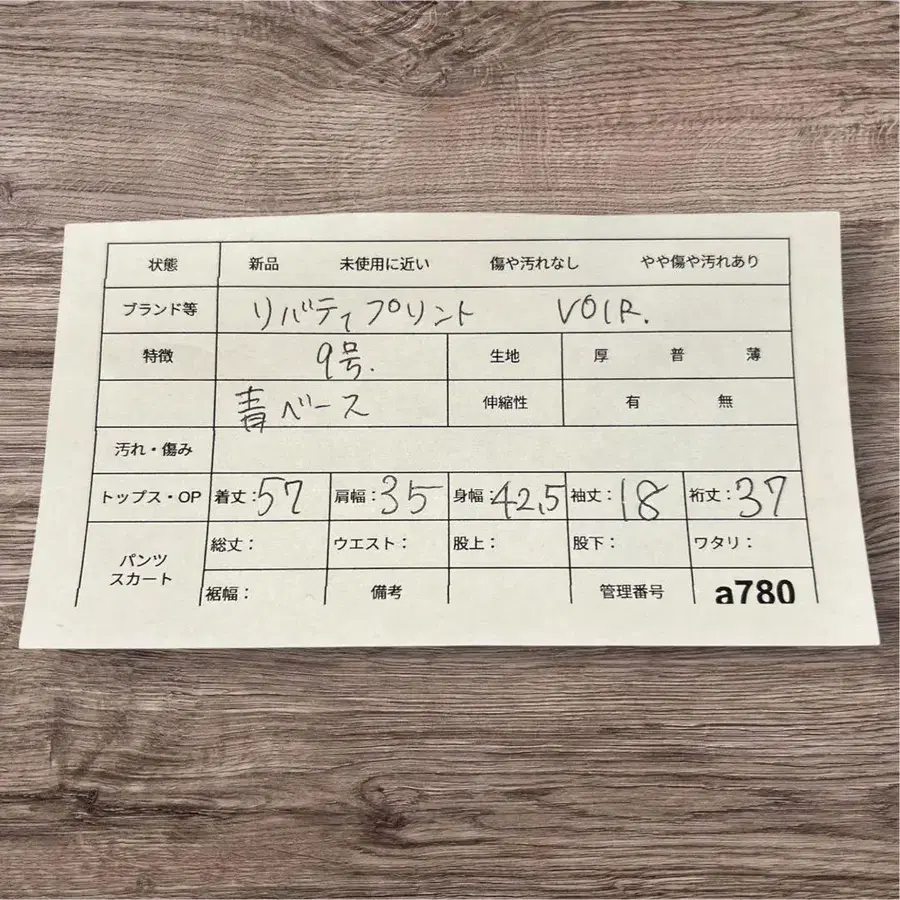 状態 新品 未使用に近い 傷や汚れなし やや傷や汚れあり
ブランド等 リバティプリント VOIR.
特徴 9号. 生地 厚 普 薄
青ベース 伸縮性 有 無
汚れ・傷み
トップス・OP 着丈:57 肩幅:35 身幅:42,5 袖丈:18 裄丈:37
パンツ スカート 総丈: ウエスト: 股上: 股下: ワタリ:
裾幅: 備考 管理番号 a780